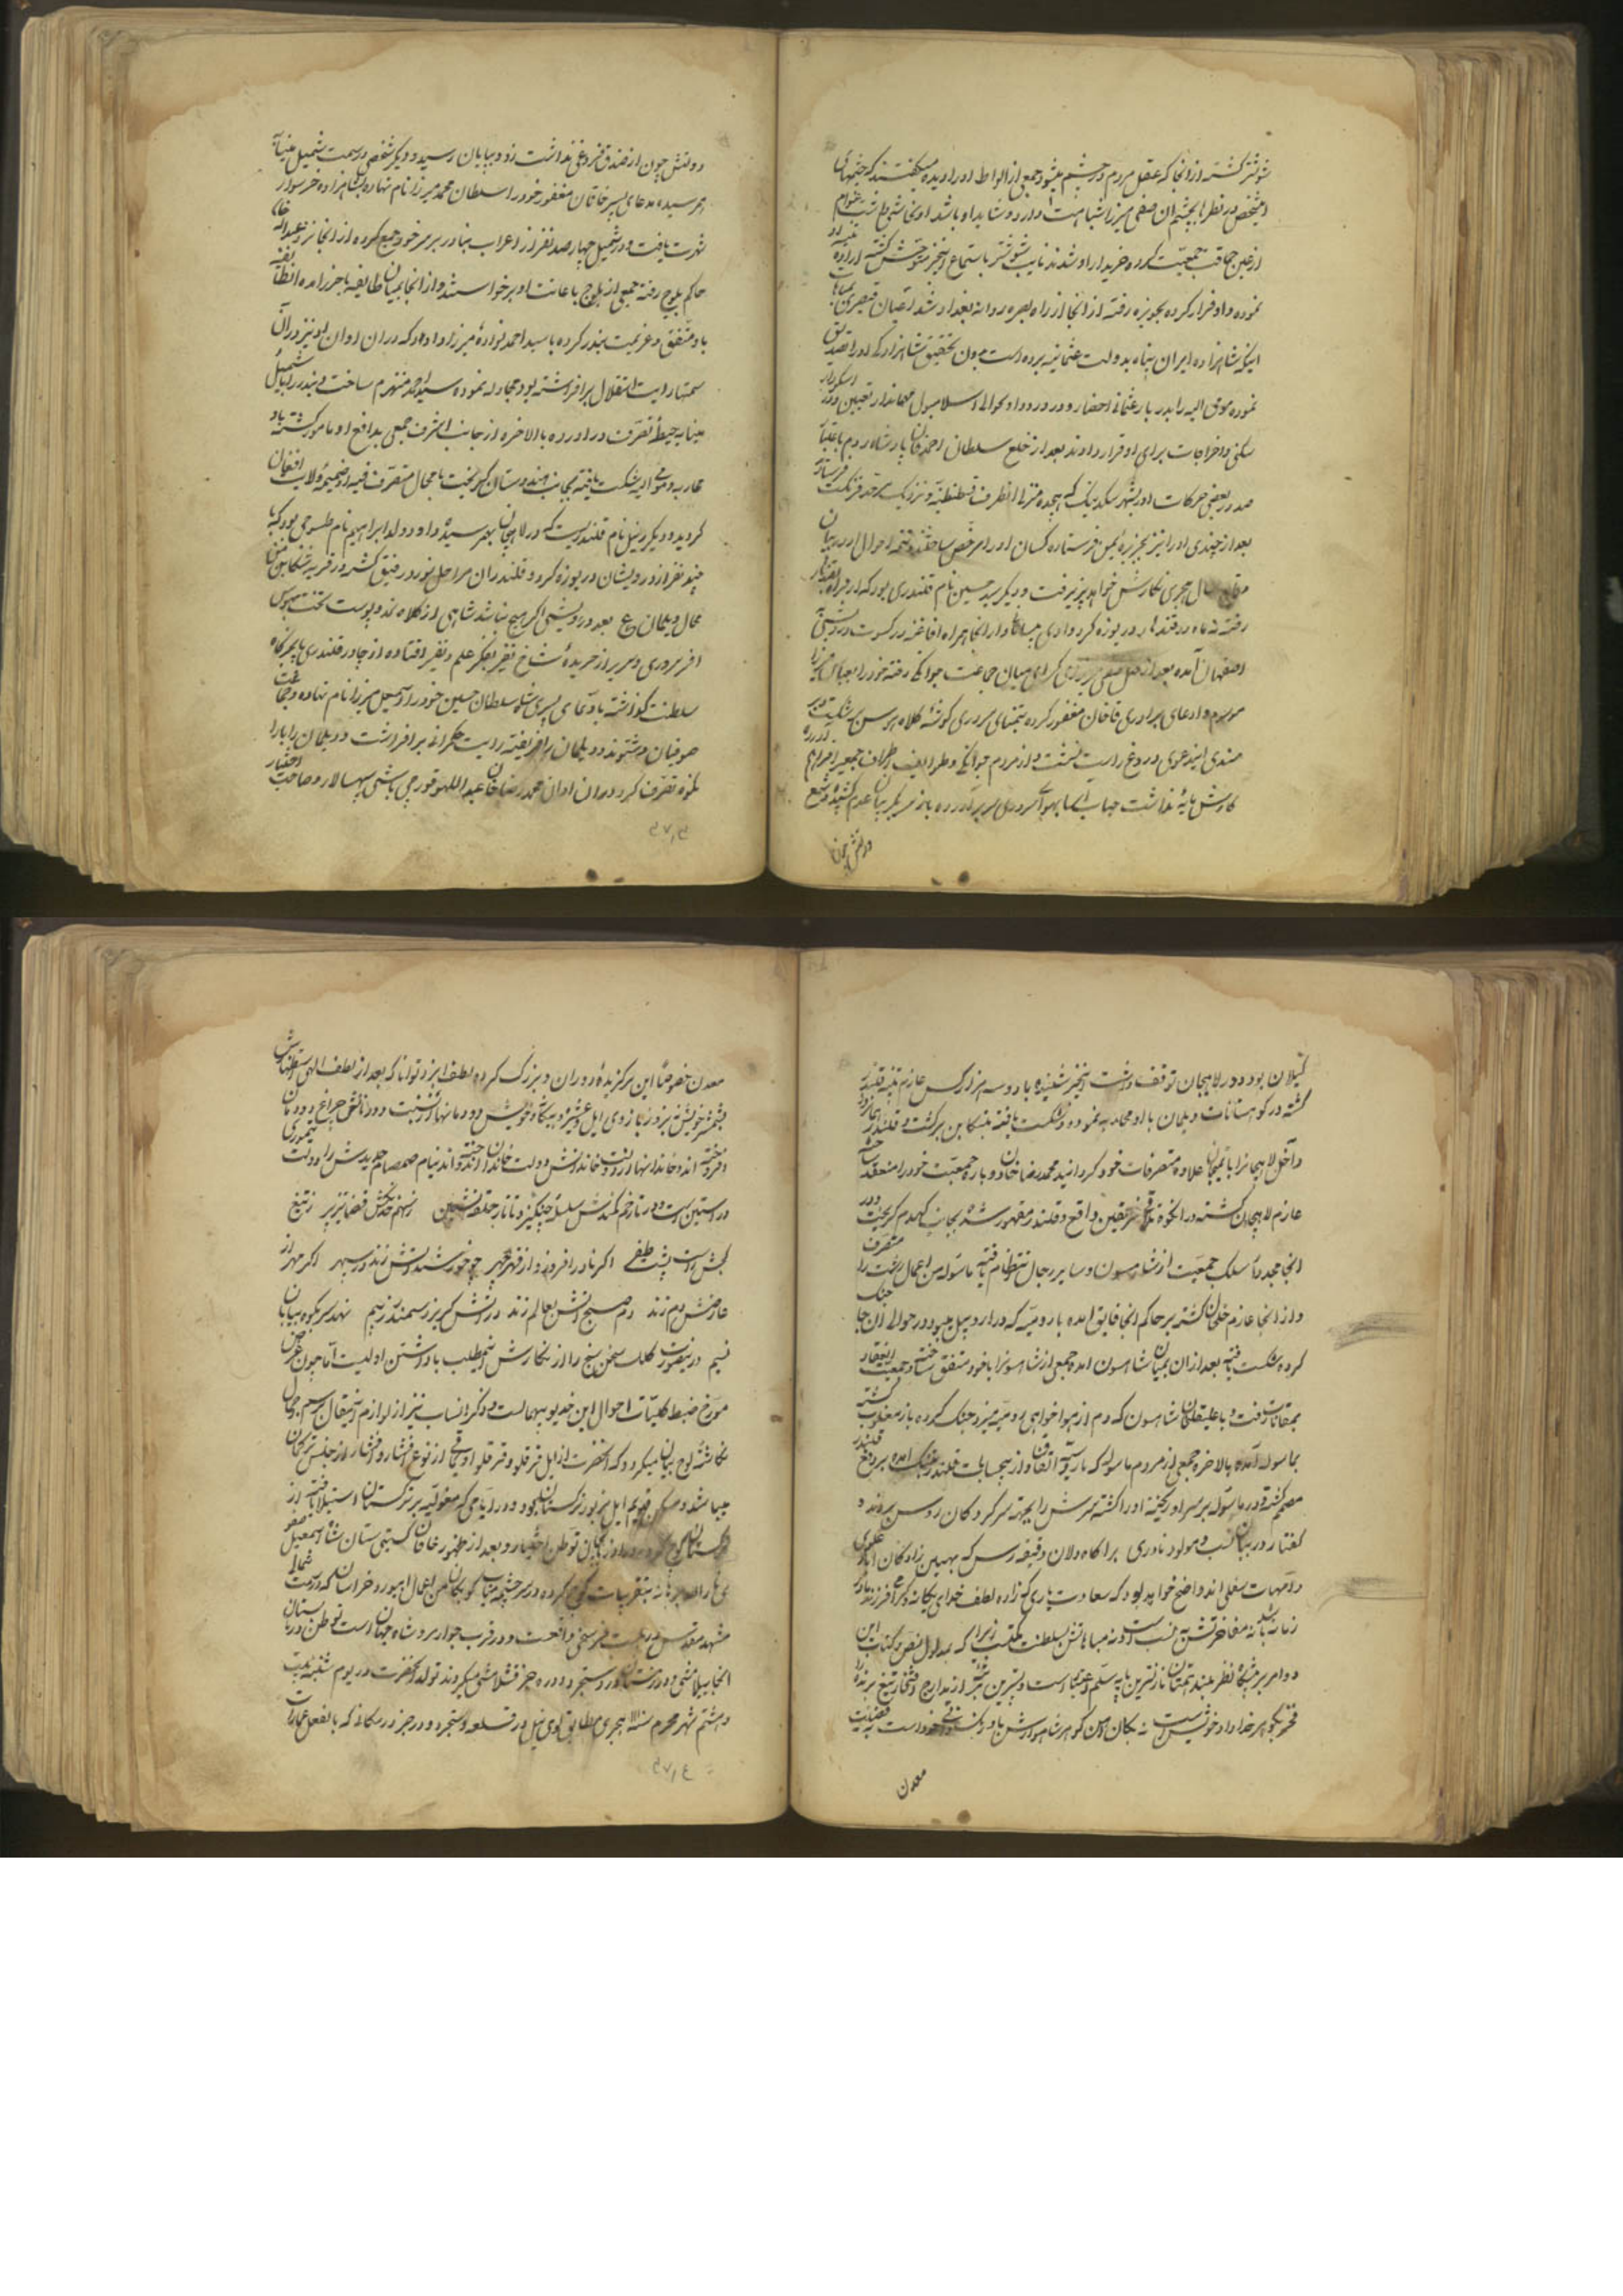 شوشتر گشته از انجا که عقل مردم در چشم میشود جمعی از الواط او را دیده میگفتند که چشمهای
این شخص در نظر ما بچشم ان صفی میرزا شباهت دارد و شاید او باشد
از عین حماقت جمعیت کرده خریدار او شدند نایب شوشتر باستماع اینخبر متوحش گشته اراده
نموده و او فرار کرده بحویزه رفته از انجا از راه بصره روانه بغداد شد
اینکه شاهزاده ایران پناه بدولت عثمانیه برده است بدون تحقیق شاهزادگی او را تصدیق
نموده موقی الیه را بدربار عثمانی احضار و در ورود او بحوالی اسلامبول مهماندار تعیین و در
سکنی و اخراجات برای او قرار دادند بعد از خلع سلطان احمد خان پادشاه روم باعتبار
صدور بعضی حرکات او را بشهر
بعد از چندی او را نیز بجزیره لیمن فرستاده کسان او را مرخص ساختند و تتمه احوال او در بیان
سال هجری نگارش خواهد پذیرفت و دیگر سید حسین نام قلندری بود که از فراه بقندهار
رفته نه ماه در قندهار دریوزه کرد و از انجا همراه افاغنه در کسوت درویشی
اصفهان آمده بعد از قتل صفی میرزای میان جماعت جوانکی رفته خود را بعباس میرزا
موسوم و ادعای برادری خاقان مغفور کرده بتمنای سروری گوشه کلاه هوس بر شکست
این دعوی دروغ راست نشست و از مردم جوانکی و طوایف اطراف جمعیتی فراهم
پایه نداشت حباب اسا بهوای سروری سر برآورده باز سر بگریبان عدم کشید و شمع
دولتش چون
دولتش چون از صدق فروغی نداشت زود بپایان رسید و دیگر شخصی در سمت شمیل میناب
بهم رسیده ادعای پسر خاقان مغفور خود را سلطان محمد میرزا نام نهاده و بشاهزاده خرسوار
شهرت یافت و در شمیل چهارصد نفر از اعراب بنادر بر سر خود جمع کرده از انجا نزد عبدالله خان
حاکم بلوچ رفته جمعی از بلوچ باعانت او برخواستند و از انجا بمیان طایفه
با او متفق و عزیمت بندر کرده با سید احمد نواده میرزا داود که در ان اوان او نیز در ان
سمتها رایت استقلال برافراشته بود مجادله نموده سید احمد منهزم ساخت و بندر را با شمیل
میناب بحیطه تصرف دراورده بالاخره از جانب اشرف جمعی بدافع او مامور گشته با او
محاربه و مومی الیه شکست یافته بجانب هندوستان گریخت با محال متصرف فیه او ضمیمه ولایت افغان
گردید و دیگر زینل نام قلندریست که در لاهیجان بهم رسیده و او ولد ابراهیم نام طسوجی بود که با
چند نفر از درویشان دریوزه کرد و قلندران مراحل نورد رفیق گشته در قریه
محال دیلمان ع بعد درویشی اگر هیچ نباشد شاهی از کلاه نمد و پوست تخت بهوس
افسر سروری و سریر از
سلطنت گذاشته بادعای پسری شاه سلطان حسین خود را اسمعیل میرزا نام نهاده و جماعت
صوفیان دشتوند و دیلمان را فریفته رایت حکمرانی برافراشت و دیلمان را با رانکوه
تصرف کرد و دران اوان محمد رضا خان عبداللهو قورچی باشی سپهسالار و صاحب اختیار
گیلان بود و در لاهیجان توقف داشت اینخبر شنیده با دو سه هزار کس عازم تنبیه قلندر
گشته در کوهستانات دیلمان با او محاربه نموده و شکست یافته بتنکابن برگشت و قلندر
داخل لاهیجان علاوه متصرفات خود گردانید محمد رضا خان دوباره جمعیت خود را منعقد ساخته
عازم لاهیجان گشته در رانکوه تلاقی فریقین واقع و قلندر مقهور شده بجانب کهدم گریخت و در
انجا مجددا سلک جمعیت از شاهسون و سایر رجال انتظام یافته ماسوله من اعمال رشت را متصرف
و از انجا عازم خلخال گشته بر حاکم انجا فایق امده با رومیه که در اردبیل میبود در حوالی ان جا جنگ
کرده شکست یافته بعد از ان بمیان شاهسون امده جمعی از شاهسون را با خود متفق ساخته و جمعیت
بمغانات رفت و با علیقلی خان شاهسون که دم از هواخواهی رومیه میزد جنگ کرده باز مغلوب گشته
بماسوله آمده بالاخره جمعی از مردم ماسوله که با رومیه اتفاق و از بیحسابیات قلندر بتنگ امده بر دفع
مصمم گشته در ماسوله بر سر او ریخته او را کشته سرش را بجهت سرکردکان روس بردند
گفتار در بیان نسب و مولود نادری بر آگاه دلان دقیقه رس که بهین زادگان آباء علوی
و امهات سفلی اند واضح خواهد بود که سعادت یاری که زاده لطف خدای یگانه و گرامی فرزند مادر
زمانه باشد نه مفاخرتش به نسب است و نه مباهاتش بسلطنت مکتسب زیرا که بمدلول نص کتاب این
دو امر در پیشگاه نظر بلند همتان نازلترین پایه سلم اعتبار است و پستترین مرتبه از مدارج افتخار تیغ برنده را
فخر بگوهر خداداد خویش است نه بکان آهن گوهر شاهوار
معدن
معدن خصوصا این برگزیده دوران و بزرگ کرده لطف ایزد توانا که بعد از لطف الهی استظهارش
بشمشیر خویش نه بزور بازوی ایل و عشیره و بیگانه و خویش دودمانها از نسبت دودمانش چراغ دودمان
افروخته اند و خاندانها از دولت خاندانش دولت خاندان اندوخته اند نیام صمصام حدیدش را دولت تیموری
در آستین است و در تارخم کمندش سلسله چنگیز و تاتار حلقه نشین
اگر نادر افروزد از قهر چهر چو خورشید آتش زند در سپهر اگر مهر از
عارضش دم زند دم صبح آتش بعالم زند در آتش گریزد سمندر ز بیم نهد سر بکوه و بیابان
نسیم درینصورت کلک سخن سنج را از نگارش اینمطلب باز داشتن اولیست اما چون غرض
مورخ ضبط کلیات احوال این خدیو بیهمال است و ذکر انساب نیز از لوازم
نگاشته لوح بیان میگردد که آنحضرت از ایل قرقلو و قرقلو اویماقی از نوع افشار و افشار از جنس ترکمان
میباشد و مسکن قدیم ایل مزبور ترکستان بود و در ایامی که مغولیه بر ترکستان استیلا یافتند از
ترکستان کوچ کرده در آذربایجان توطن اختیار و بعد از ظهور خاقان گیتی ستان شاه اسمعیل صفوی
انار الله برهانه بتقریبات کوچ کرده در سرچشمه میاب کوبکان من اعمال ابیورد خراسان که در سمت شمال
مشهد مقدس در بیست فرسخی واقعست و در قرب جوار مرو شاه جهان است توطن و در تابستان
انجا ییلامیشی و در زمستان در دستجرد دره جز قشلامیشی میکردند تولد آنحضرت در یوم شنبه بیست
و هشتم شهر محرم سنه هجری مطابق لوی ئیل در قلعه دستجرد دره جز در مکانی که بالفعل عمارات